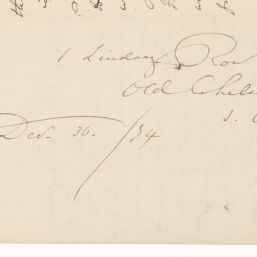 1 Lindsey Row
Old Chels
S.
Dec. 30. /54